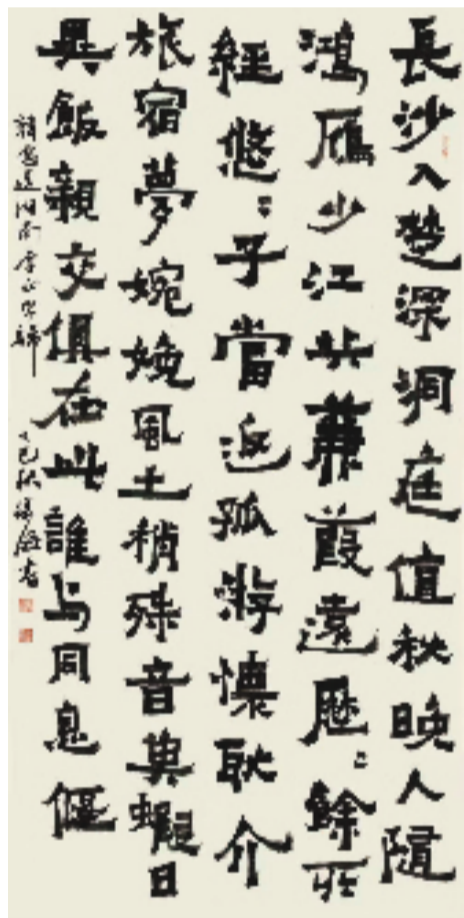 長沙入楚深洞庭值秋晚人隨
鴻鴈少江共蒹葭遠歷〻餘所
經悠〻子當返孤游懷耿介
旅宿夢婉娩風土稍殊音魚蝦日
異飯親交俱在此誰与同息偃
韓愈送湖南李正字歸 乙巳秋 書